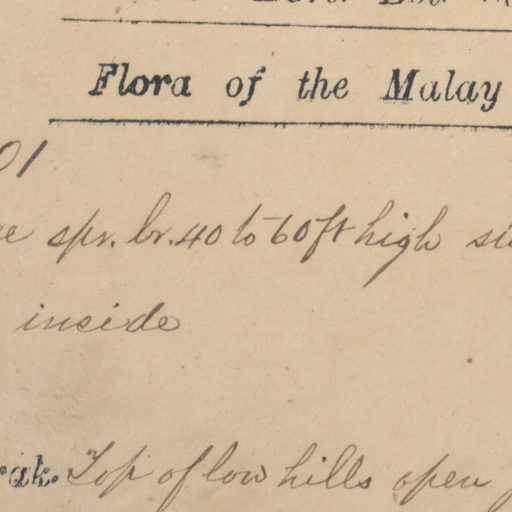 Flora of the Malay
01
spr. br. 40 to 60 ft high
inside
rak. Top of low hills open